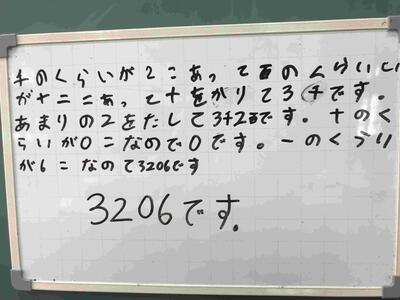 千のくらいが2こあって百のくらいい
が十二こあって十をかりて3千です。
あまりの2をたして3千2百です。十のく
らいが0こなので0です。一のくらい
が6こなので3206です
3206です。